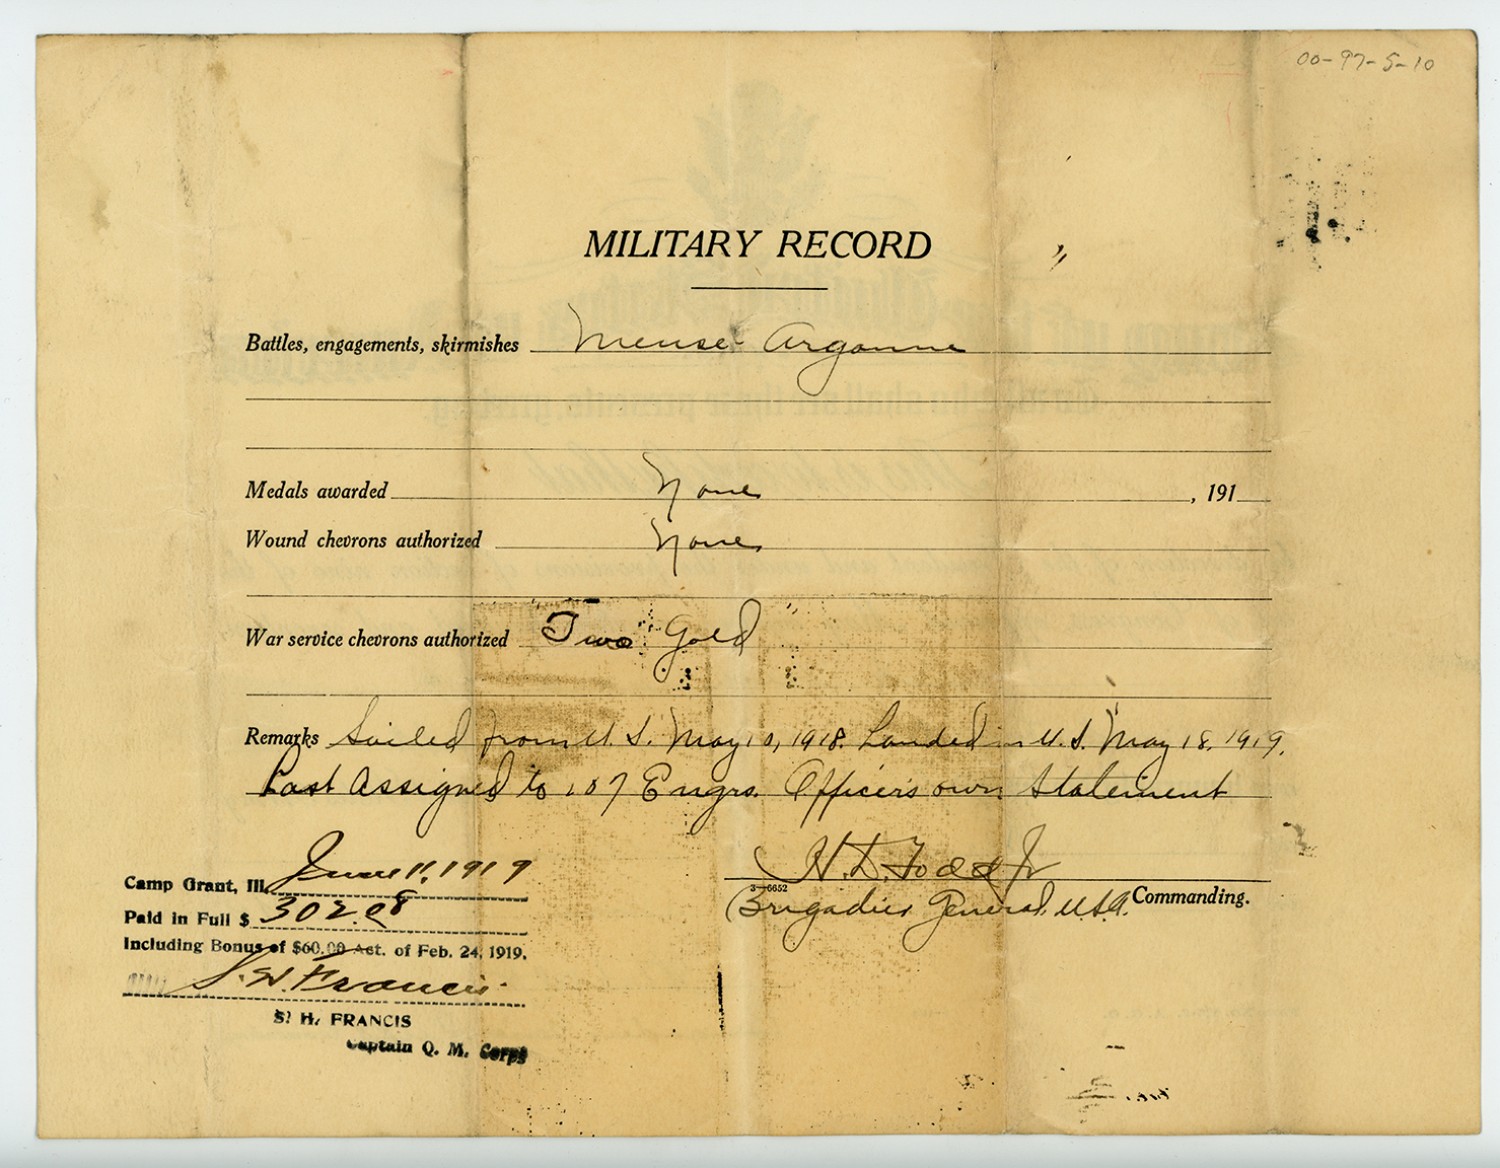 00-97-5-10
MILITARY RECORD
Battles, engagements, skirmishes Meuse-Argonne
Medals awarded None , 191
Wound chevrons authorized None
War service chevrons authorized Two Gold
Remarks Sailed from U.S. May 10, 1918. Landed in U.S. May 18, 1919.
Last Assigned to 107 Engrs. Officer's own Statement
H. D. Todd Jr
3-6652
Brigadier General, U.S.A. Commanding.
Camp Grant, Ill. June 11, 1919
Paid in Full $ 302.08
Including Bonus of $60.00 Act. of Feb. 24, 1919.
S. H. Francis
S. H. FRANCIS
Captain Q. M. Corps